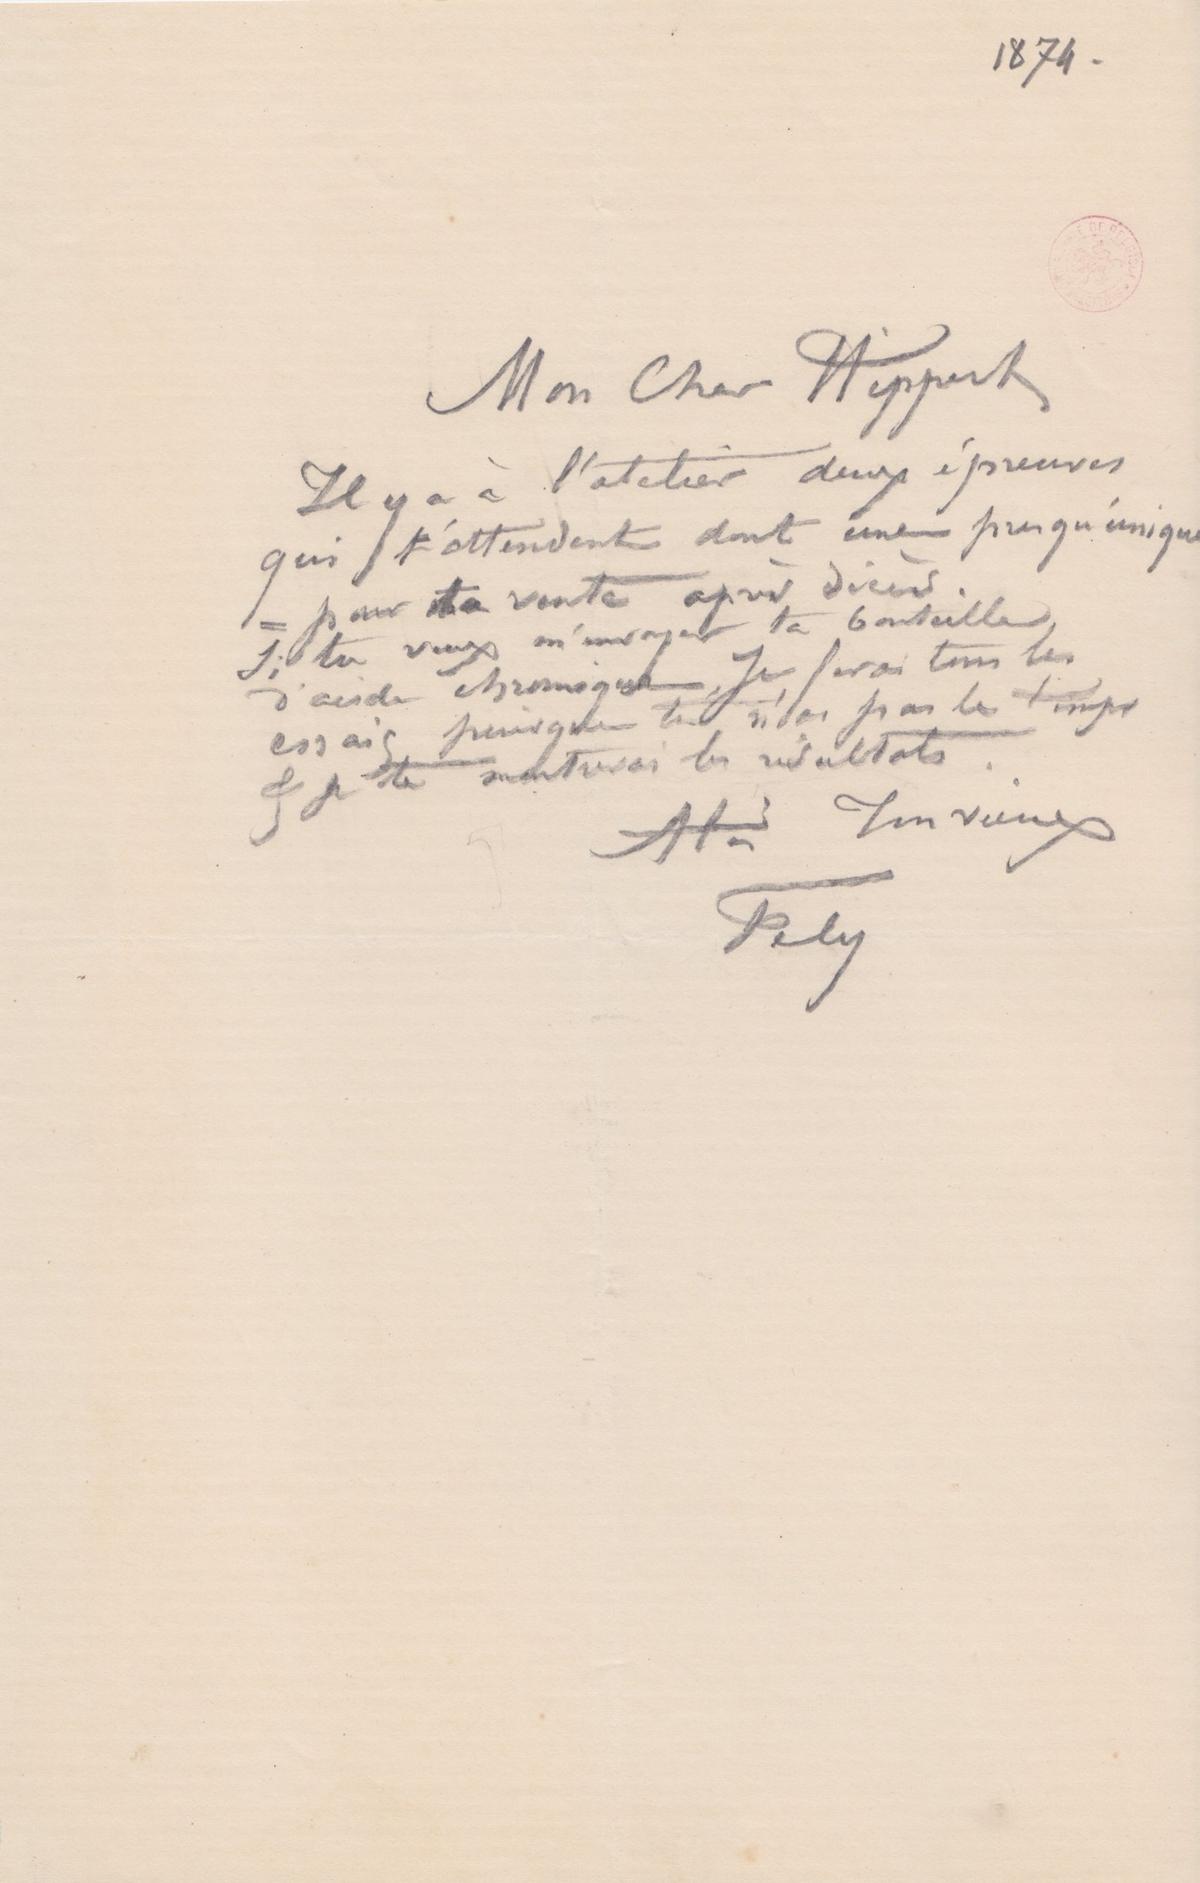 1874.
Mon Cher Nippert
Il y a à l'atelier deux épreuves
qui t'attendent dont une presqu'unique
= pour ta vente après décès.
Si tu veux m'envoyer ta bouteille
d'acide chromique, Je ferai tous les
essais puisque tu n'as pas le temps
& je te montrerai les résultats.
A toi Ton vieux
Fély